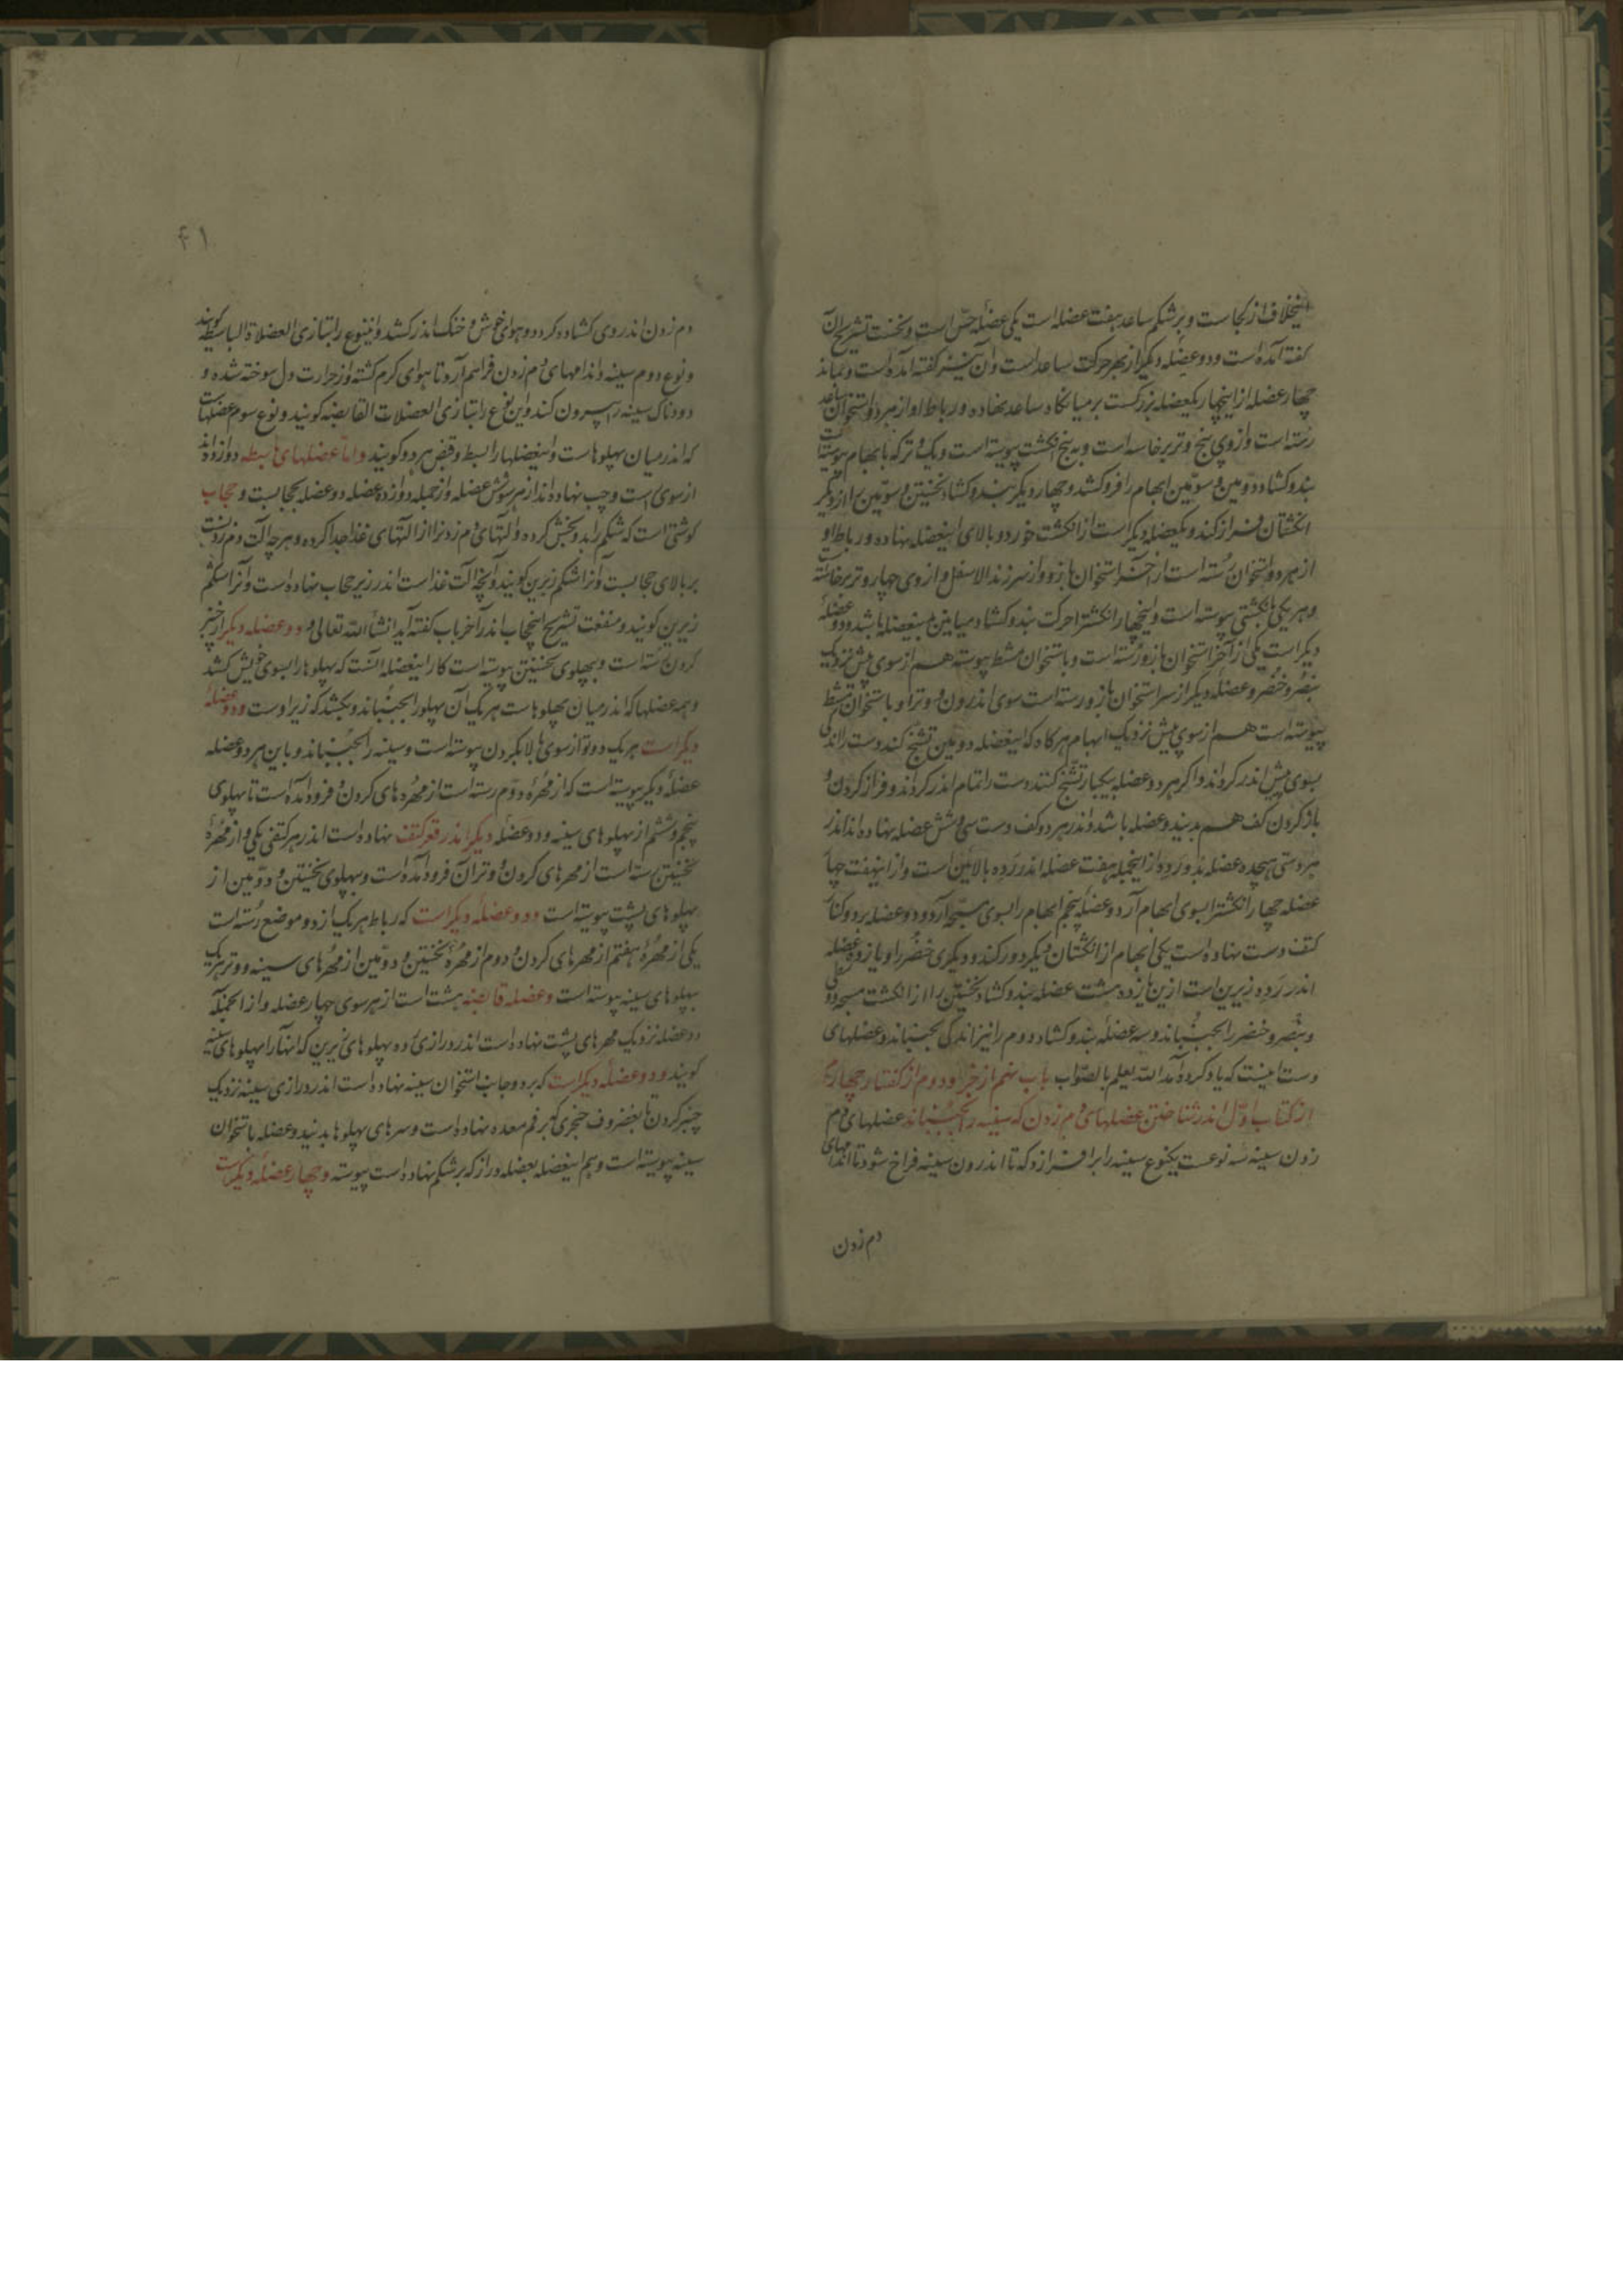 اینخلاف از کجاست و بر شکم ساعد هفت عضله است یکی عضلهٔ حس است و نخست تشریح آن
گفته آمده است و دو عضله دیگر از بهر حرکت ساعد است و آن نیز گفته آمده است و بماند
چهار عضله از اینچهار یکعضله بزرگست بر میانگاه ساعد نهاده و رباط او از هر دو استخوان ساعد
رسته است و از وی پنج وتر برخاسته است و به پنج انگشت پیوسته است و یک وتر که بابهام پیوسته است
بند و کشاد دومین و سومین ابهام را فرو کشد و چهار دیگر بند و کشاد نخستین و سومین را از دیگر
انگشتان فراز کند و یکعضله دیگر است از انگشت خورد و بالای اینعضله نهاده و رباط او
از هر دو استخوان رسته است از آخر استخوان بازو و از سر زند الاسفل و از وی چهار وتر برخاسته
و هر یکی بانگشتی پیوسته است و اینچهار انگشت را حرکت بند و کشاد میانین باینعضله باشد و دو عضلهٔ
دیگر است یکی از آخر استخوان بازو رسته است و باستخوان مشط پیوسته هم از سوی پیش نزدیک
بنصر و خنصر و عضله دیگر از سر استخوان بازو رسته است سوی اندرون و وتر او باستخوان مشط
پیوسته است هم از سوی پیش نزدیک ابهام هرگاه که اینعضله دومین تشنج کند دست را اندکی
بسوی پیش اندر گرداند و اگر هر دو عضله بیکبار تشنج کنند دست را تمام اندر گرداند و فراز کردن و
باز کردن کف هم بدیند و عضله باشد و اندر هر دو کف دست سی و شش عضله نهاده اند اندر
هر دستی هیجده عضله بدو رده از اینجمله هفت عضله اندر رده بالایین است و از اینهفت چهار
عضله چهار انگشت را بسوی ابهام آرد و عضله پنجم ابهام را بسوی سبحه آرد و دو عضله بر دو کنار
کتف دست نهاده است یکی ابهام از انگشتان دیگر دور کند و دیگری خنصر را و یازده عضله
اندر رده زیرین است ازین یازده هشت عضله بند و کشاد نخستین را از انگشت مسبحه و وسطی
و بنصر و خنصر را بجنباند و سه عضله بند و کشاد دوم را نیز اندکی بجنباند و عضلهای
دست اینست که یاد کرده آمد الله یعلم بالصواب باب نهم از جزو دوم از گفتار چهارم
از کتاب اول اندر شناختن عضلهای دم زدن که سینه را بجنباند عضلهای دم
زدن سینه سه نوعست یکنوع سینه را برافرازد که تا اندرون سینه فراخ شود تا اندامهای
دم زدن
۴۱
دم زدن اندر وی کشاده گردد و هوای خوش و خنک اندر کشد و اینوع را بتازی العضلاة الباسطه گویند
و نوع دوم سینه و اندامهای دم زدن فراهم آرد تا هوای گرم گشته و از حرارت دل سوخته شده و
دودناک سینه را بیرون کند و این نوع را بتازی العضلات القابضه گویند و نوع سوم عضلهاست
که اندر میان پهلوهاست و اینعضلها را بسط و قبض هر دو گویند و اما عضلهای باسطه دوازده اند
از سوی راست و چپ نهاده اند از هر سو شش عضله و از جمله دوازده عضله دو عضله حجابست و حجاب
گوشتی است که شکم را بدو بخش کرده و آلتهای دم زدن را از آلتهای غذا جدا کرده و هرچه آلت دم زدنست
بر بالای حجابست و آنرا شکم زبرین گویند و آنچه آلت غذاست اندر زیر حجاب نهاده است و آنرا شکم
زیرین گویند و منفعت تشریح اینحجاب اندر آخر باب گفته آید انشاء الله تعالی و دو عضله دیگر از چنبر
گردن رسته است و بپهلوی نخستین پیوسته است کار اینعضله آنست که پهلوها را بسوی خویش کشد
و همه عضلها که اندر میان پهلوهاست هر یک آن پهلو را بجنباند و بکشد که زیر اوست و دو عضلهٔ
دیگر است هر یک دوتو از سوی بالا بگردن پیوسته است و سینه را بجنباند و باین هر دو عضله
عضله دیگر پیوسته است که از مهره دوم رسته است از مهره های گردن و فرود آمده است تا پهلوی
پنجم و ششم از پهلوهای سینه و دو عضله دیگر اندر قعر کتف نهاده است اندر هر کتفی یکی و از مهرهٔ
نخستین رسته است از مهرهای گردن و وتر آن فرود آمده است و بپهلوی نخستین و دومین از
پهلوهای پشت پیوسته است و دو عضله دیگر است که رباط هر یک از دو موضع رسته است
یکی از مهرهٔ هفتم از مهرهای گردن و دوم از مهرهٔ نخستین و دومین از مهرهای سینه و وتر هر یک
بپهلوهای سینه پیوسته است و عضله قابضه هشت است از هر سوی چهار عضله و از انجمله
دو عضله نزدیک مهرهای پشت نهاده است اندر درازی ده پهلوهای زبرین که انها را پهلوهای سینه
گویند و دو عضله دیگر است که بر دو جانب استخوان سینه نهاده است اندر درازی سینه نزدیک
چنبر گردن تا بغضروف خنجری که بر فم معده نهاده است و سرهای پهلوها بدیند و عضله باستخوان
سینه پیوسته است و هم اینعضله بعضله دراز که بر شکم نهاده است پیوسته و چهار عضله دیگر است